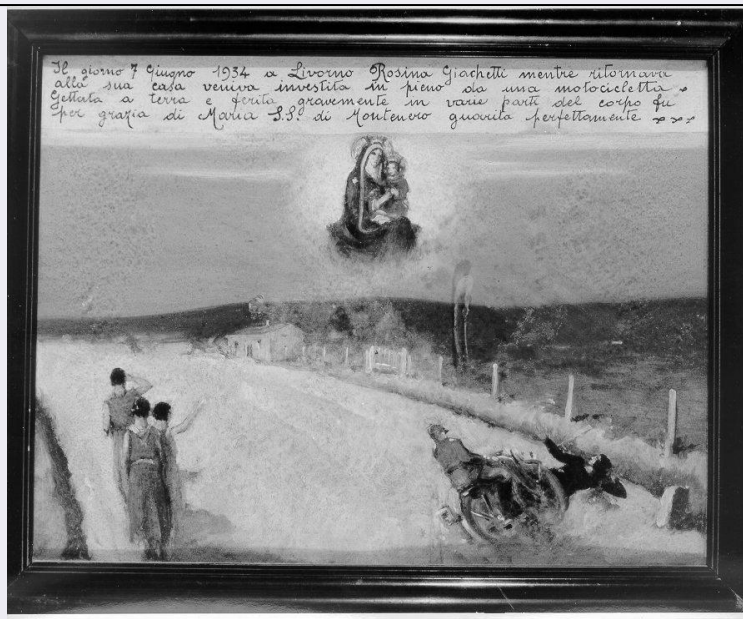 Il giorno 7 Giugno 1934 a Livorno Rosina Giachetti mentre ritornava
alla sua casa veniva investita in pieno da una motocicletta.
Gettata a terra e ferita gravemente in varie parti del corpo fu
per grazia di Maria S.S. di Montenero guarita perfettamente